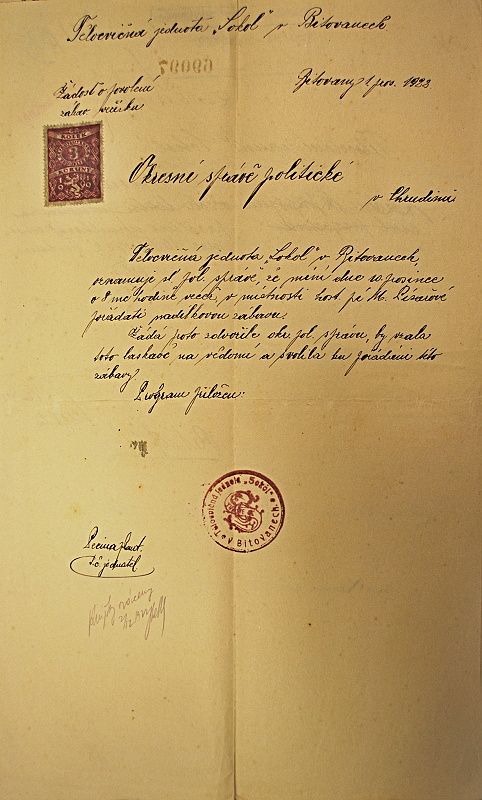 Tělocvičná jednota „Sokol“ v Bítovanech
69097
Bítovany 1. pros. 1923
Žádost o povolení
zábav. večírku
KOLEK
3
KORUNY
Okresní správě politické
v Chrudimi
Tělocvičná jednota „Sokol“ v Bítovanech,
oznamuje sl. pol. správě, že míní dne 10. prosince
o 8mé hodině več., v místnosti host. pí M. Pisařové
pořádati nadílkovou zábavu.
Žádá proto zdvořile okr. pol. správu, by vzala
toto laskavě na vědomí a svolila ku pořádání této
zábavy
Program přiložen:
Tělocvičná jednota „Sokol“
v Bítovanech
t.č. jednatel.